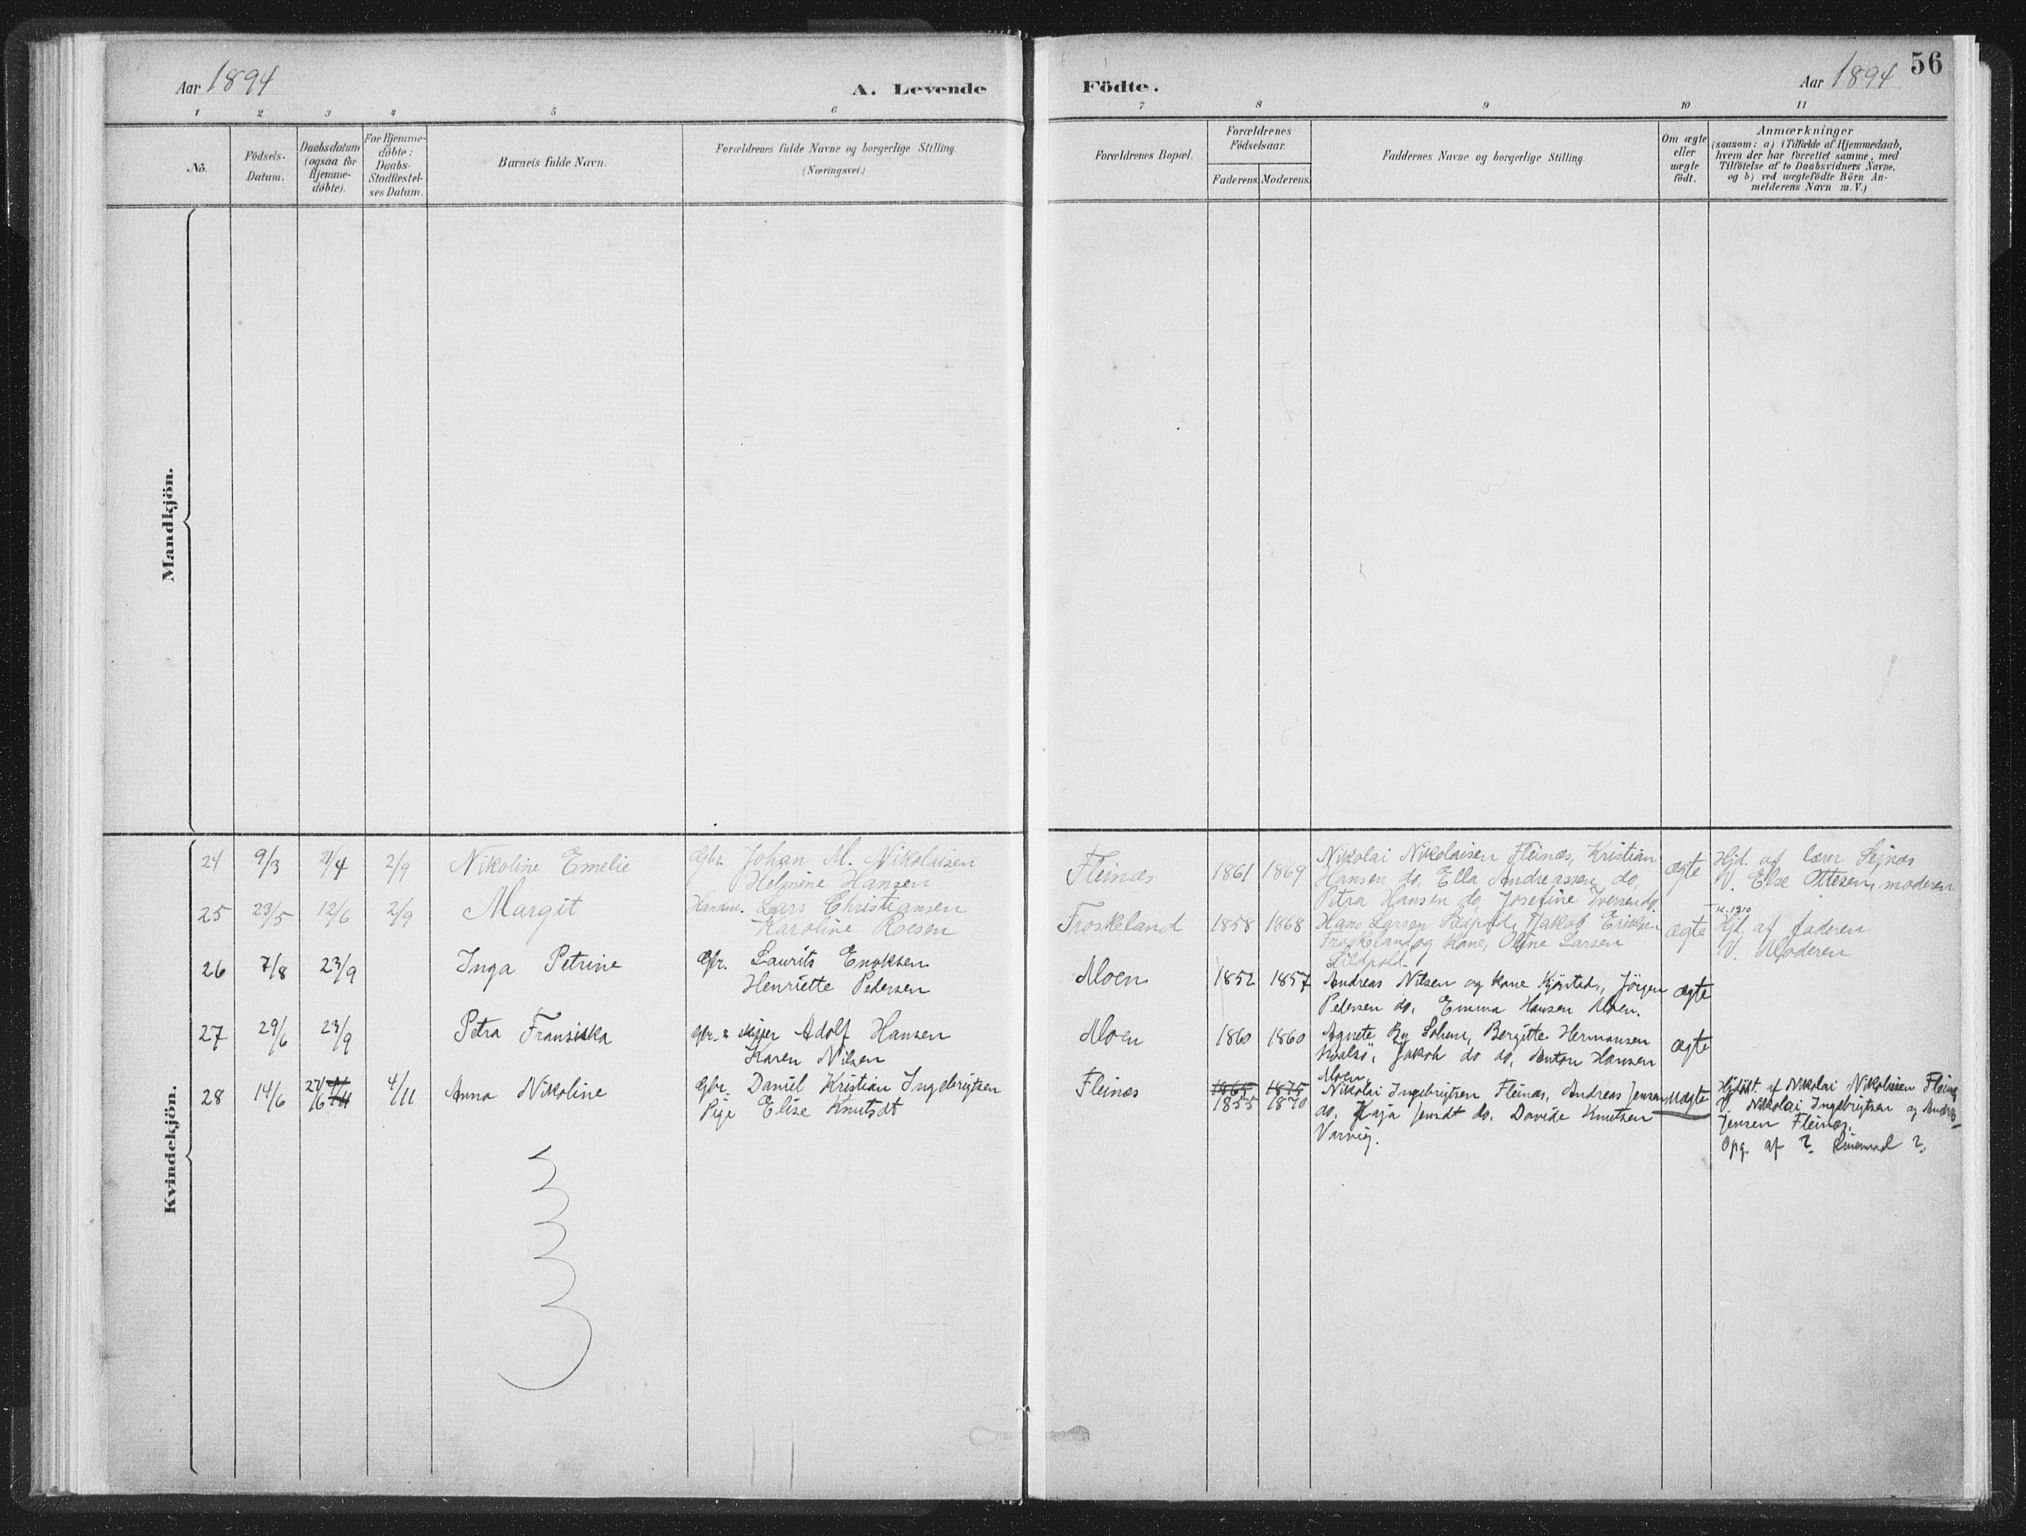 Aar 1894
A. Levende
Födte.
Aar 1894
56
1 2 3 4 5 6 7 8 9 10 11
No.
Födsels-
Datum.
Daabsdatum
(ogsaa for
Hjemme-
döbte).
For Hjemme-
döbte:
Daabs-
Stadfæstel-
ses Datum.
Barnets fulde Navn.
Forældrenes fulde Navne og borgerlige Stilling.
(Næringsvei.)
Forældrenes Bopæl.
Forældrenes
Födselsaar.
Faderens. Moderens.
Faddernes Navne og borgerlige Stilling.
Om ægte
eller
uægte
födt.
Anmærkninger
(saasom: a) i Tilfælde af Hjemmedaab,
hvem der har forrettet samme, med
Tilföielse af to Daabsvidners Navne,
og b) ved uægtefödte Börn An-
melderens Navn m. V.)
Mandkjön.
Kvindekjön.
24 9/3 21/4 2/9 Nikoline Emelie Gbr. Johan M. Nikolaisen
Helmine Hansen
Fleinæs 1861 1869 Nikolai Nikolaisen Fleinæs, Kristian
Hansen do, Ella Andreassen do,
Petra Hansen do, Josefine Iversen do.
ægte Hjd. af lærer
V. Else Ottesen, moderen
25 23/5 12/6 2/9 Margit Handm. Lars Christiansen
Karoline Roesen
Froskeland 1858 1868 Hans Larsen Jakob Eriksen
Froskeland og Kone, Oline Larsen
ægte
Hjd. af faderen
V. Moderen
26 7/8 23/9 Inga Petrine Gbr. Laurits Enoksen
Henriette Pedersen
Moen 1852 1857 Andreas Nilsen og Kone Kjörstad, Jörgen
Pedersen do, Emma Hansen Moen.
ægte
27 29/6 23/9 Petra Fransiska Gbr. & skipper Adolf Hansen
Karen Nilsen
Moen 1860 1860 Agnete By Bergitte Hermansen
Jakob do do, Anton Hansen
Moen.
ægte
28 14/6 24/6 4/11 Anna Nikoline Gbr. Daniel Kristian Ingebrigtsen
Pige Elise Knutsdt
Fleinæs 1865 1875
1855 1870
Nikolai Ingebrigtsen Fleinæs, Andreas Jensen
do, Kaja Jensdt do. Davide Knutsen
Varvig.
uægte
Hjdöbt. af Nikolai Nikolaisen Fleinæs
V. Nikolai Ingebrigtsen og Andreas
Jensen Fleinæs.
Opg. af ?